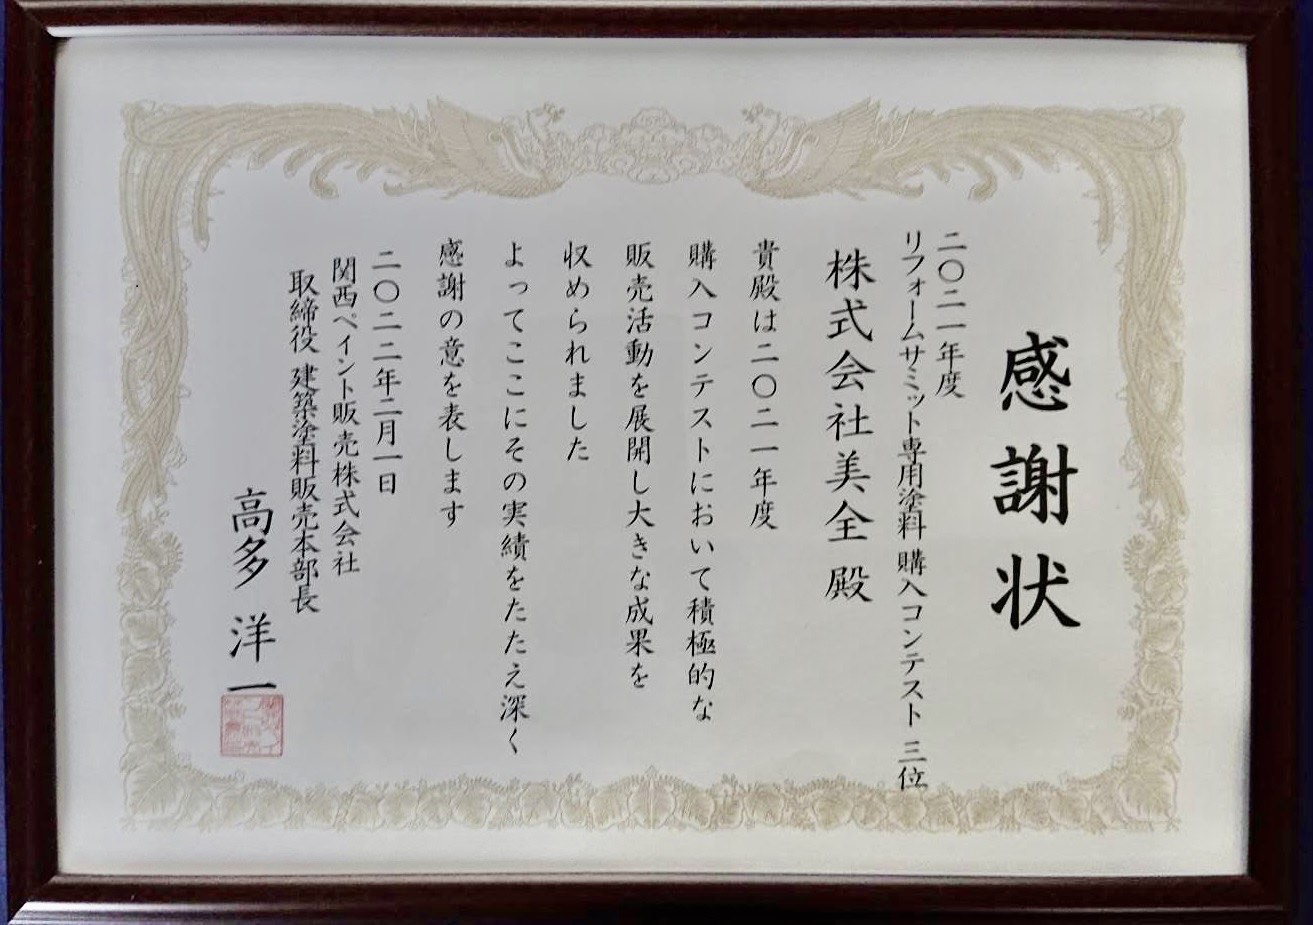 感謝状
二〇二一年度
リフォームサミット専用塗料 購入コンテスト 三位
株式会社美全 殿
貴殿は二〇二一年度
購入コンテストにおいて積極的な
販売活動を展開し大きな成果を
収められました
よってここにその実績をたたえ深く
感謝の意を表します
二〇二二年二月一日
関西ペイント販売株式会社
取締役 建築塗料販売本部長
高多 洋一